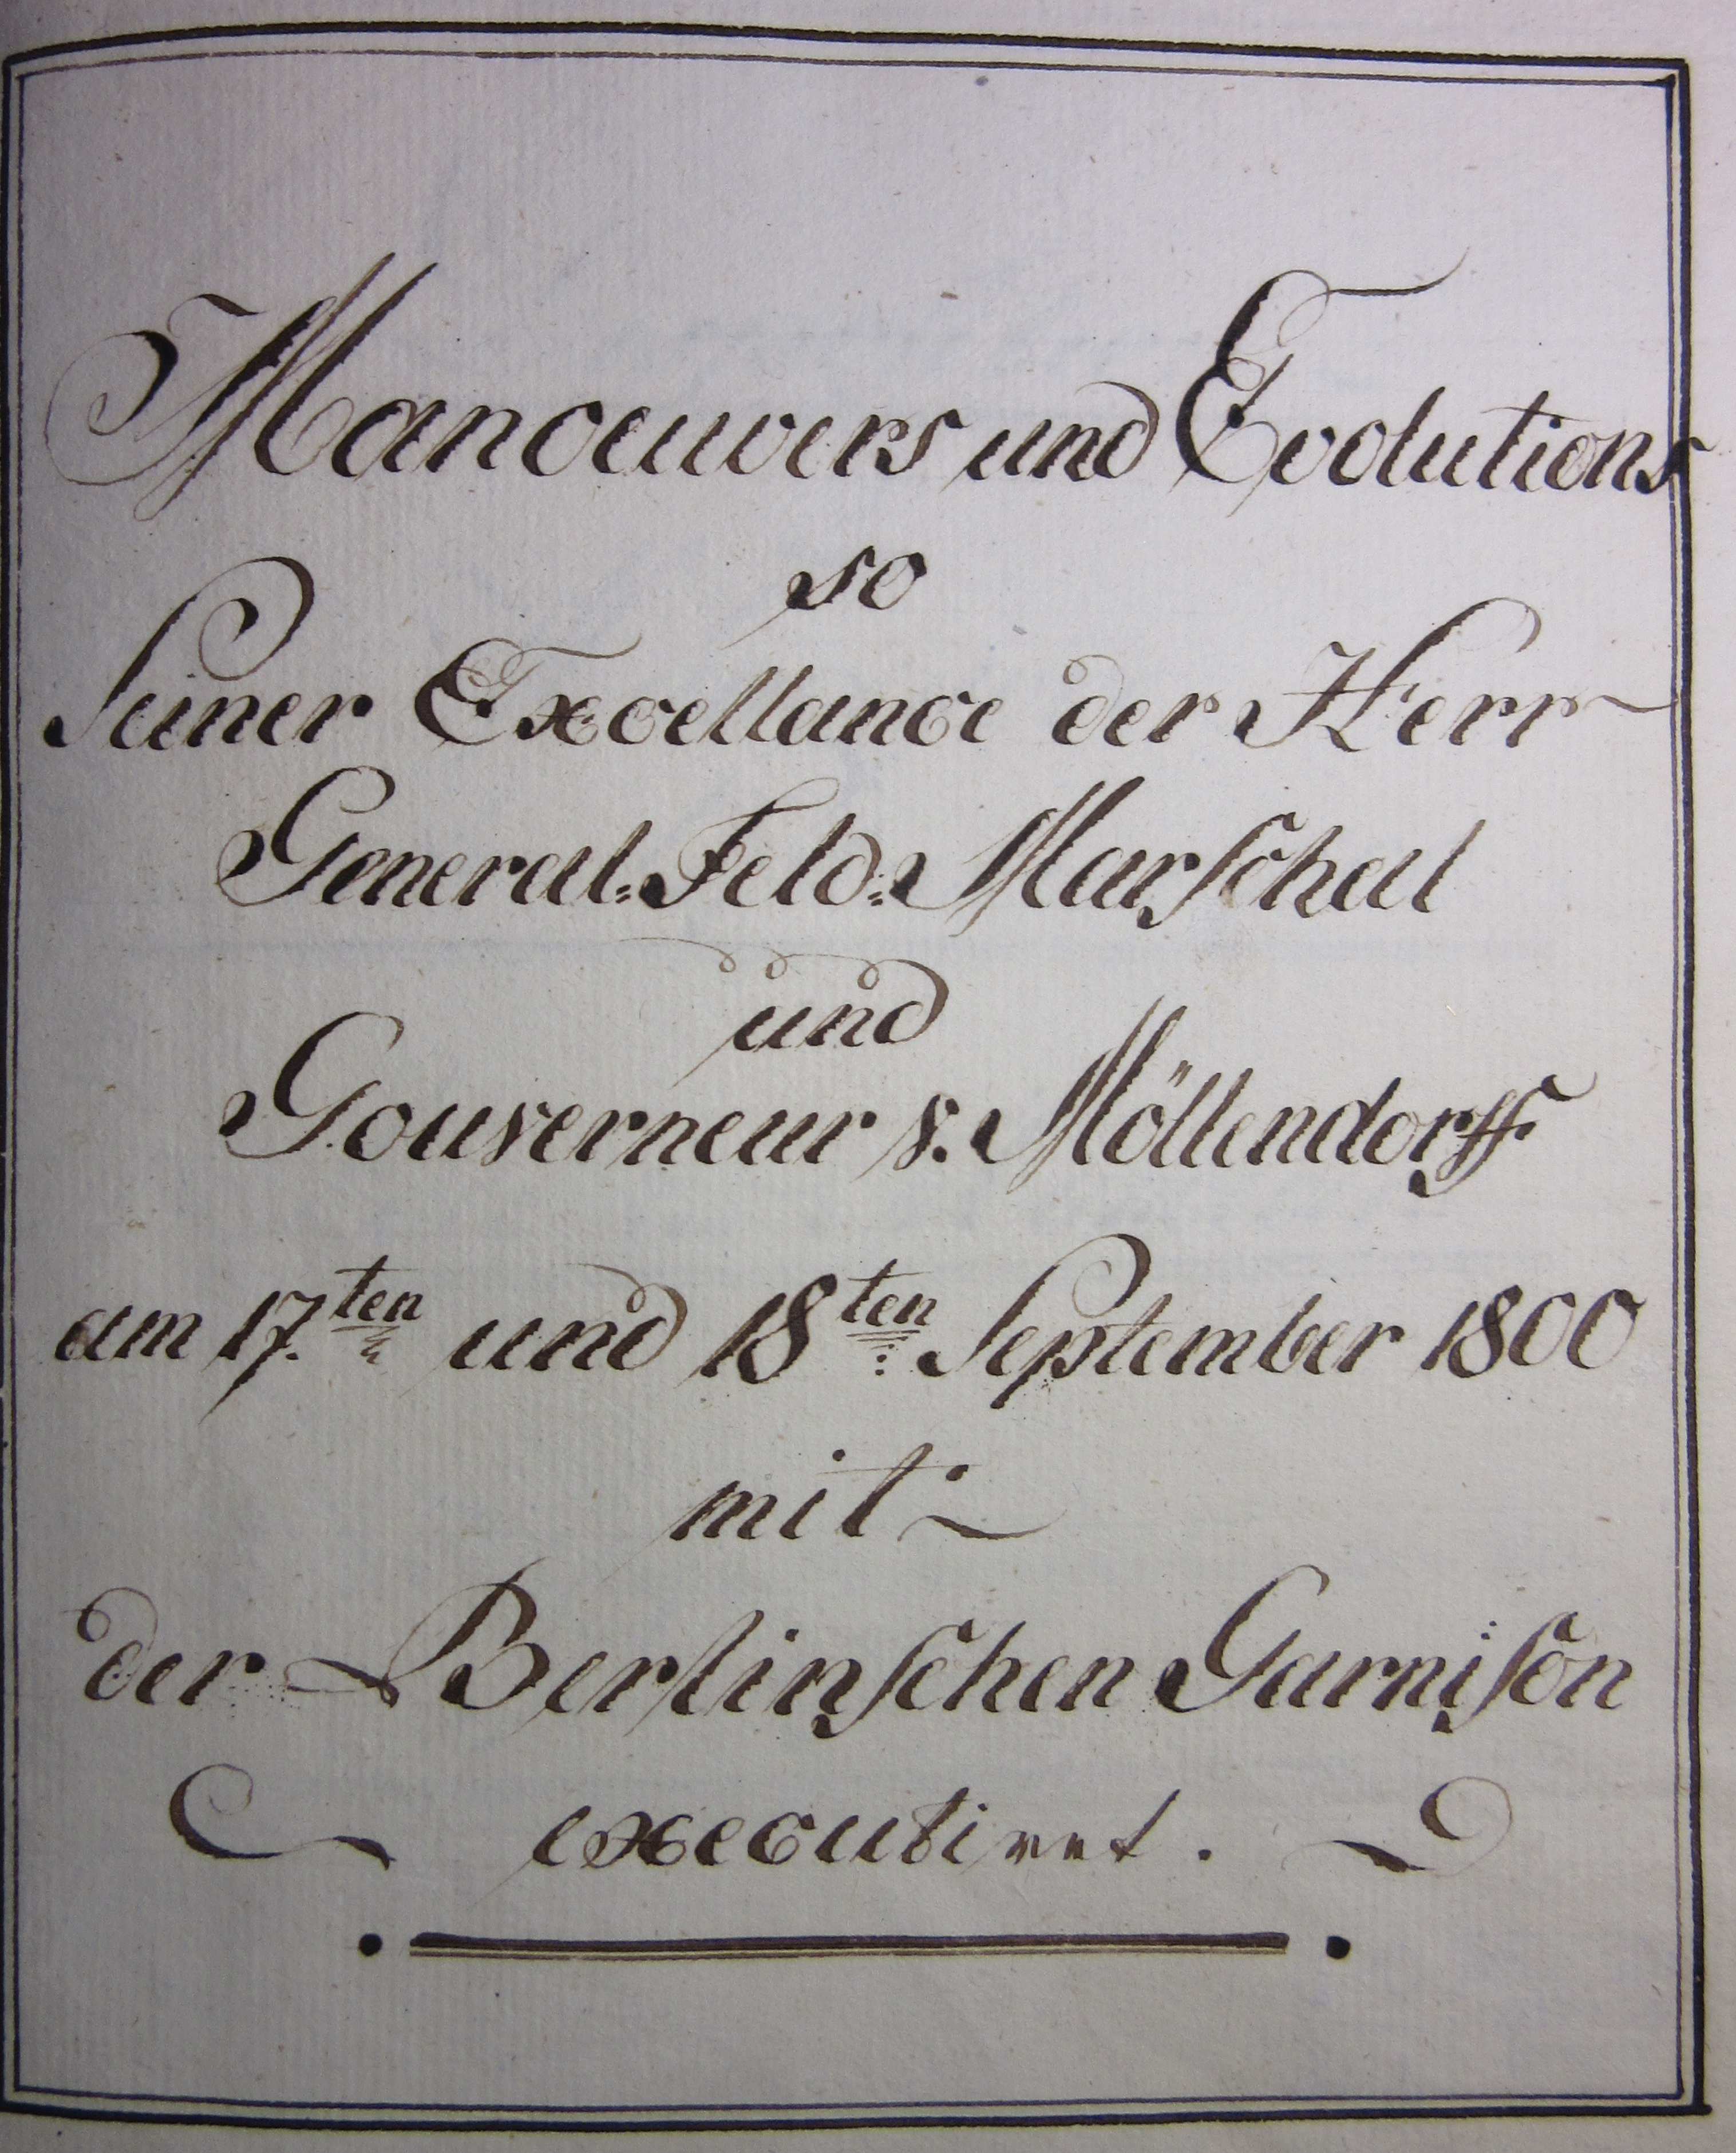 Manoeuvers und Evolutions
so
Seiner Excellance der Herr
General-Feld-Marschal
und
Gouverneur v. Möllendorff
am 17.ten und 18ten September 1800
mit
der Berlinschen Garnison
executiret.